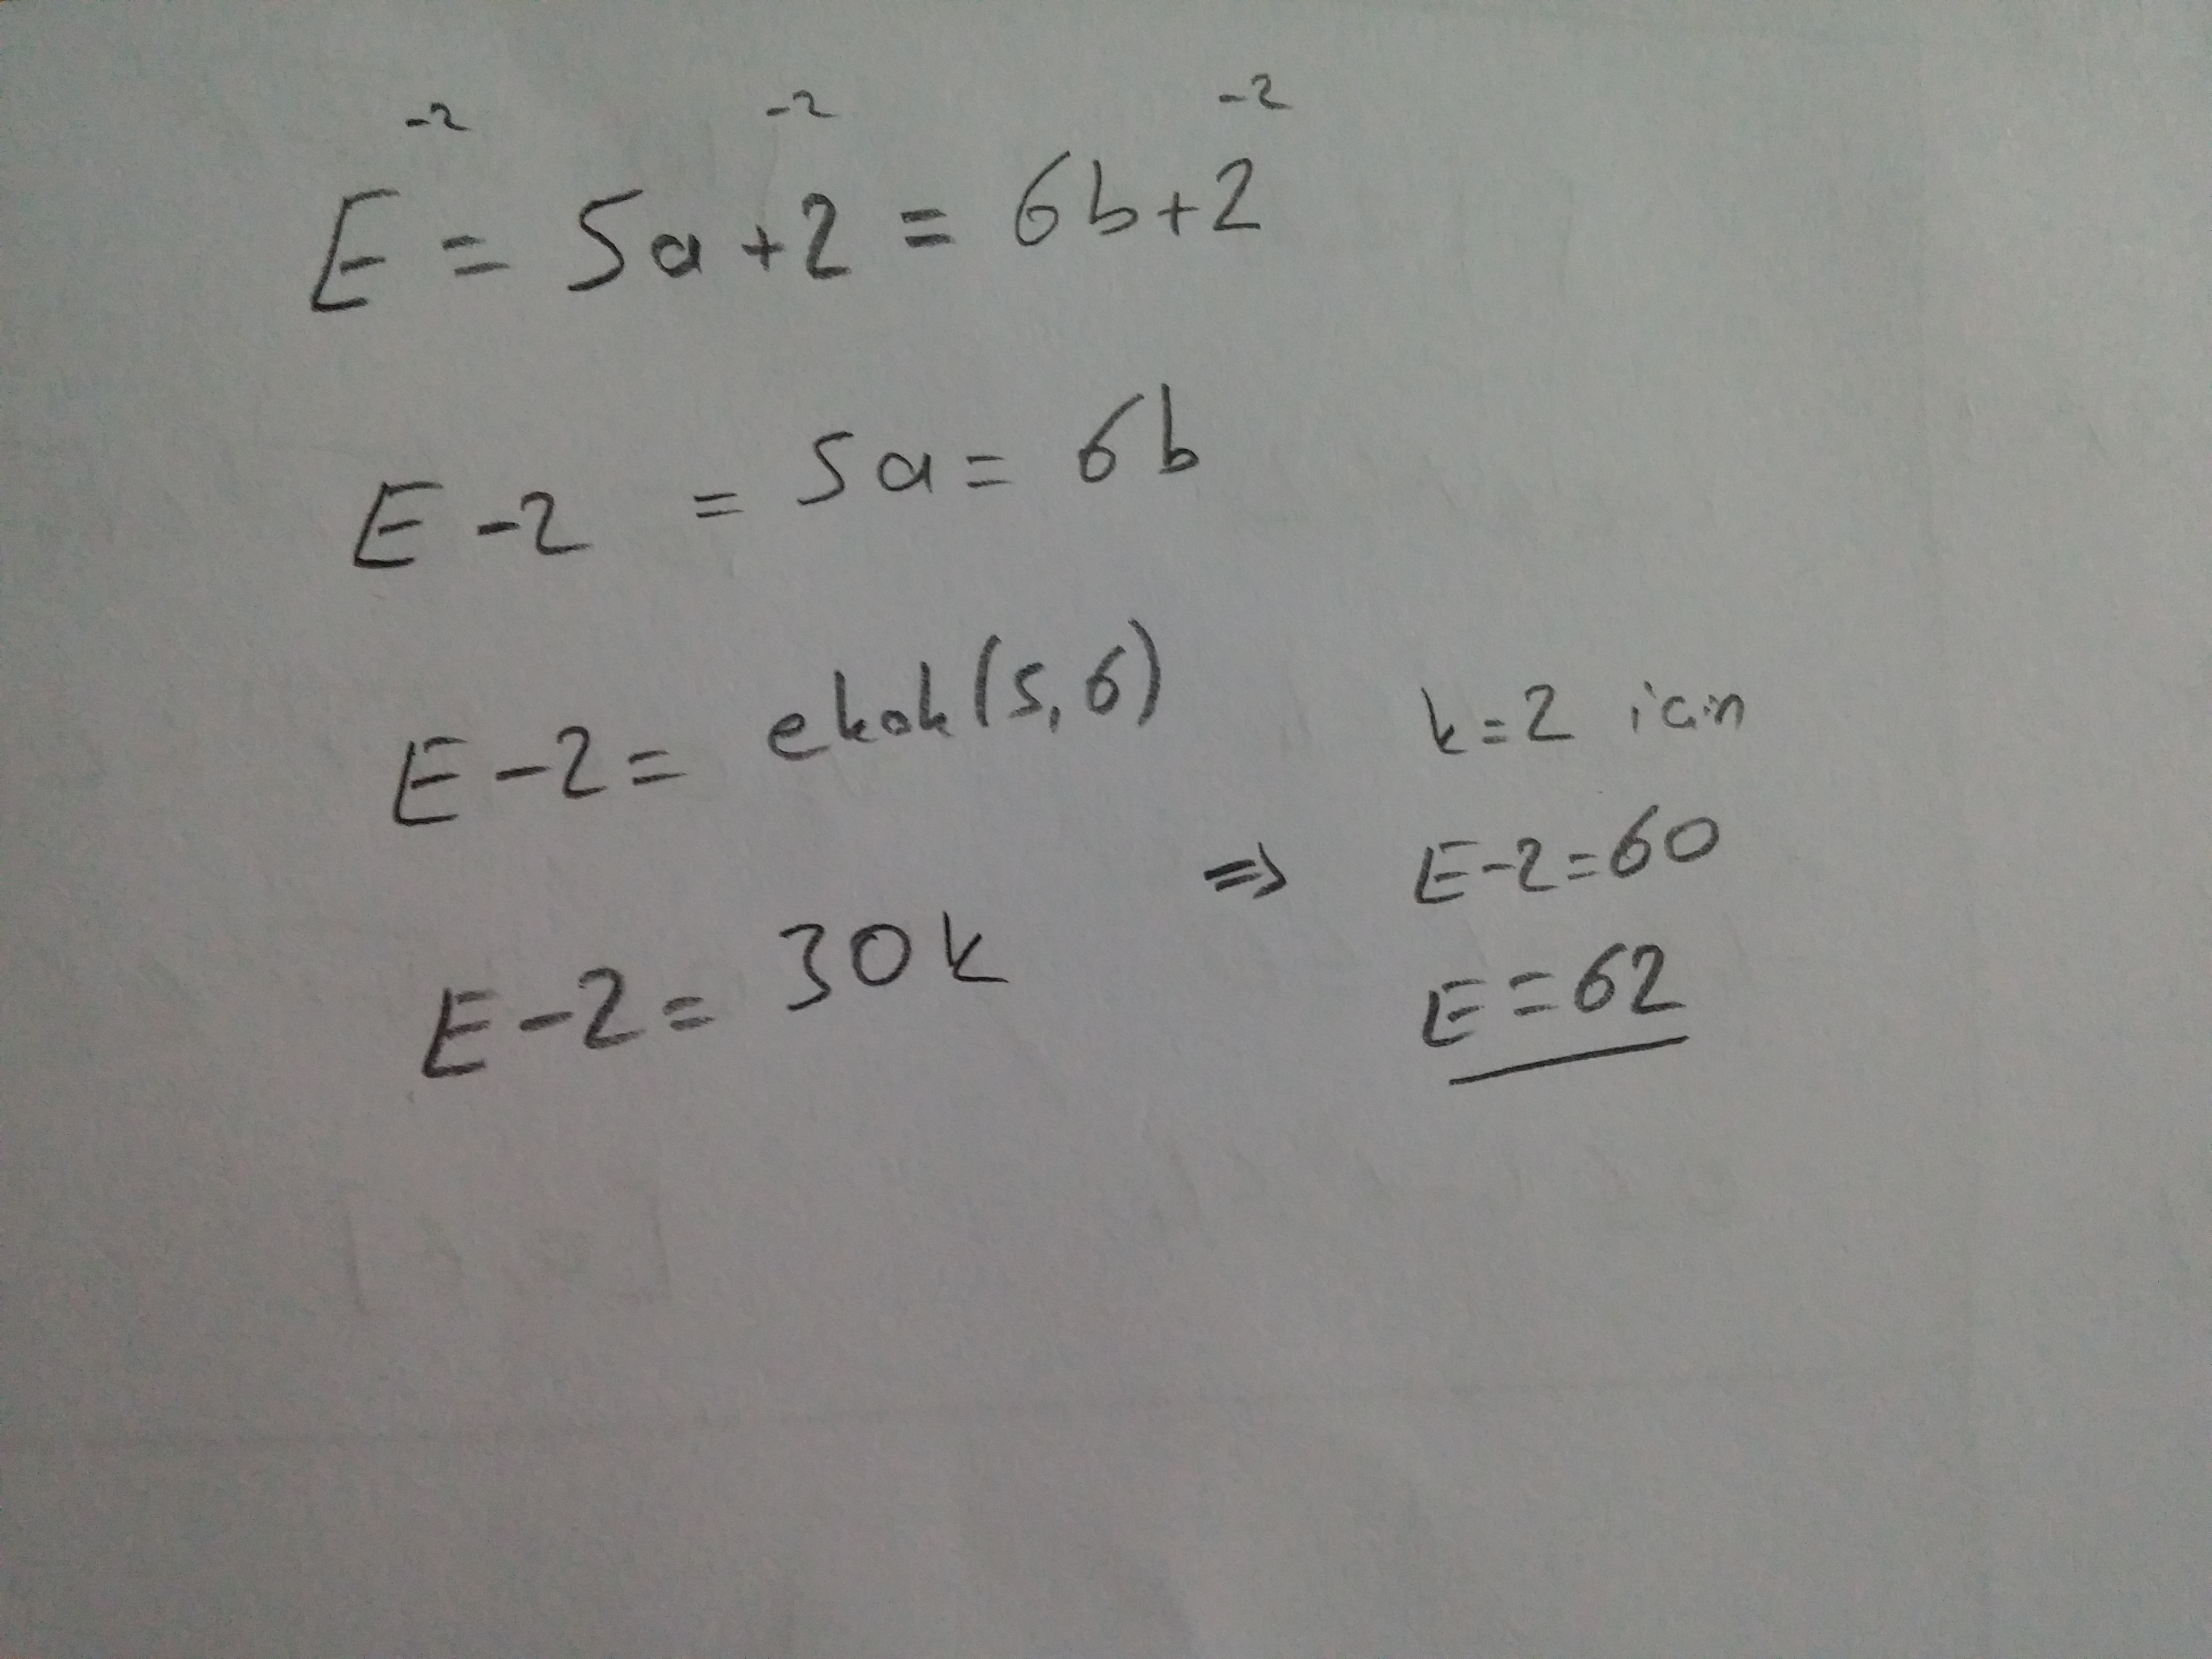 -2 -2 -2
E = 5a+2 = 6b+2
E-2 = 5a = 6b
E-2 = ekok(5,6)
E-2 = 30k
⇒
k=2 için
E-2=60
E=62